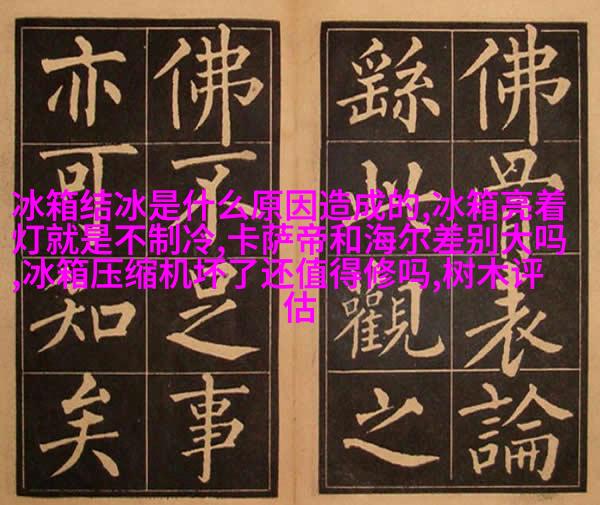 佛骨表論
繇此觀之
佛不足事
亦可知矣
冰箱结冰是什么原因造成的,冰箱亮着
灯就是不制冷,卡萨帝和海尔差别大吗
,冰箱压缩机坏了还值得修吗,树木评
估